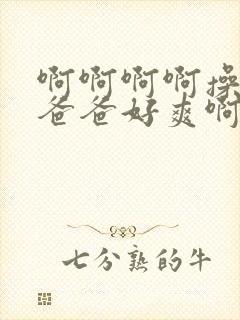 啊啊啊啊操
爸爸好爽啊
七分熟的牛